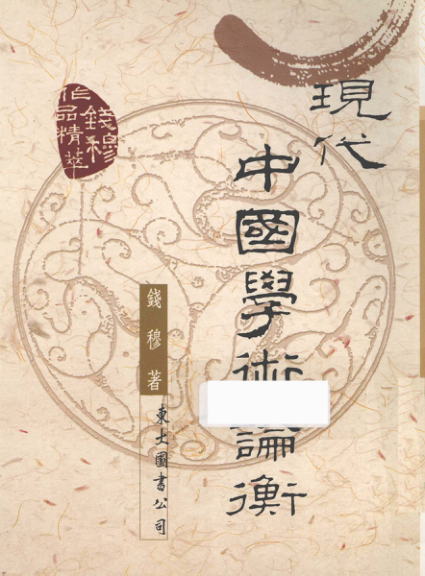 現代
中國學術論衡
錢穆
作品精萃
錢穆著
東大圖書公司